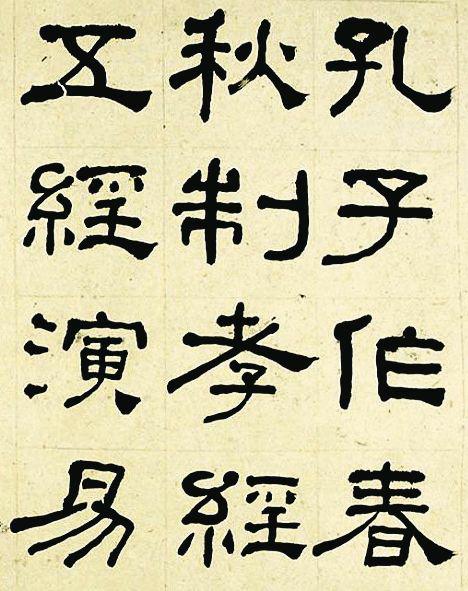 孔子作春
秋制孝經
五經演易